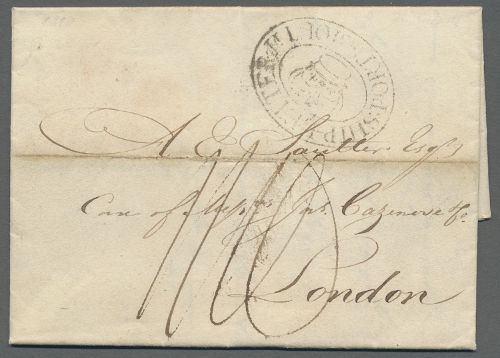 SHIP LETTER PORT
A E Sautter Esqr
Care of Messrs Jas. Cazenove & Co.
London